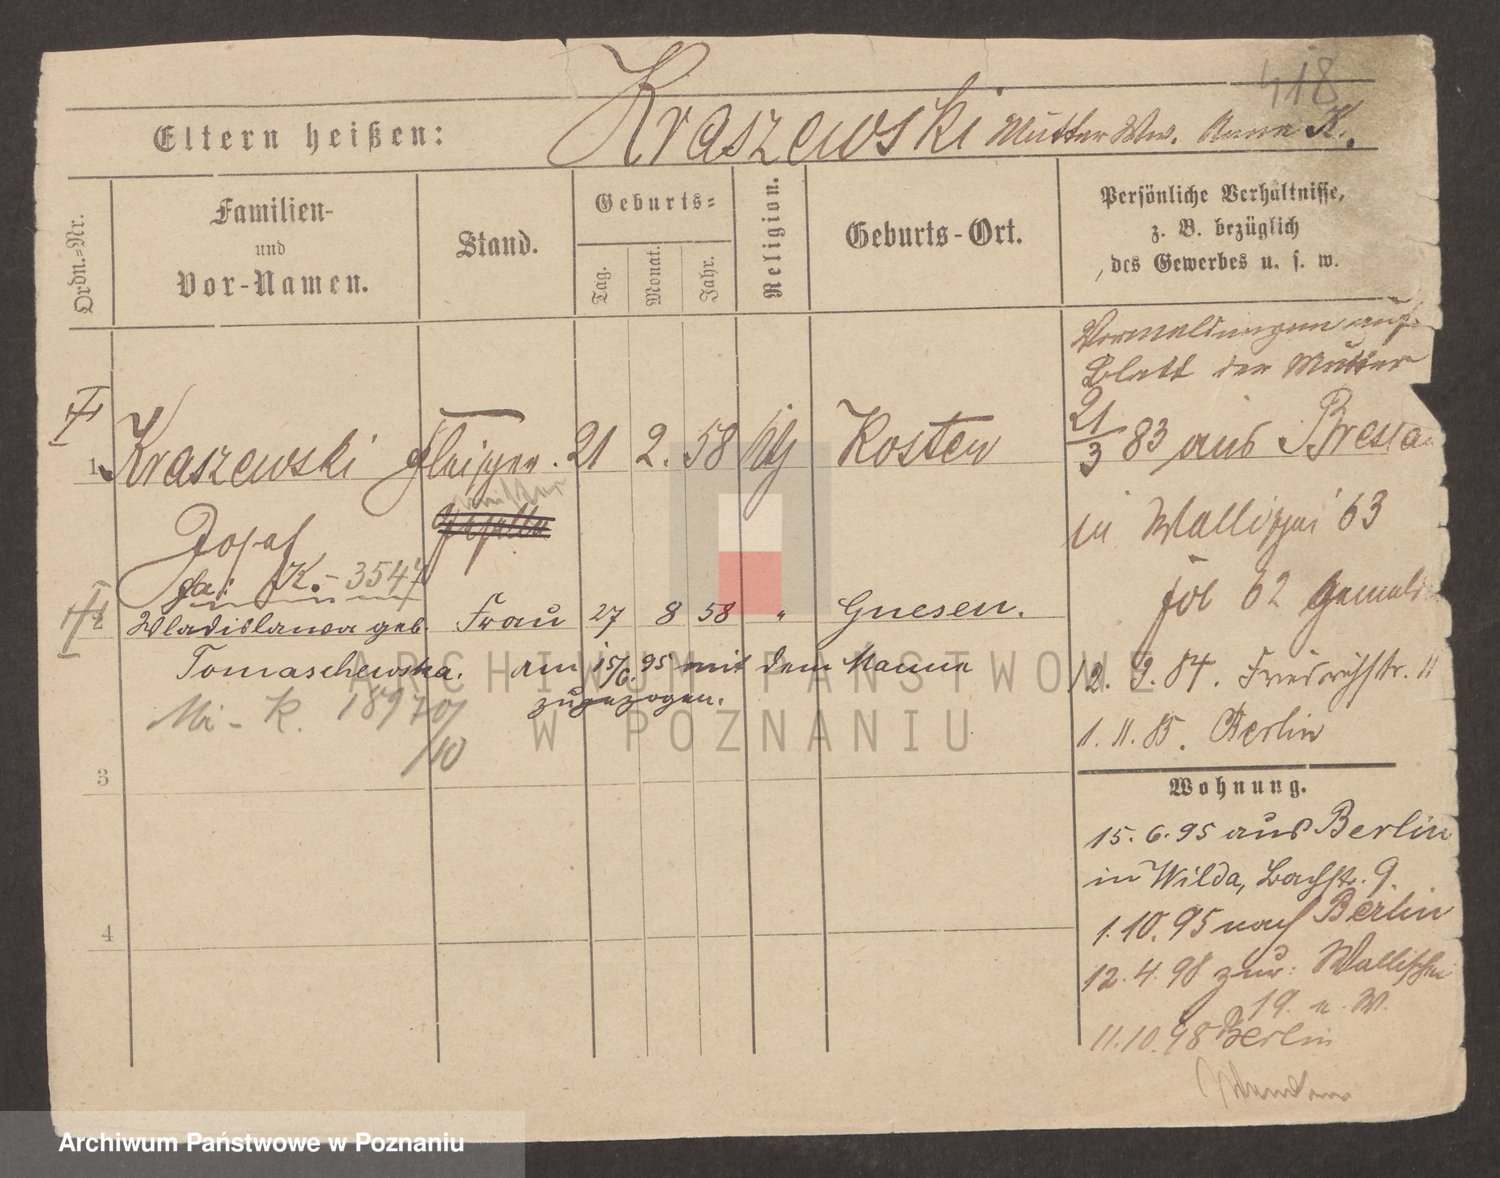 418
Eltern heißen: Kraszewski Mutter Ww. Anna K.
Ordn.-Nr.
Familien-
und
Vor-Namen.
Stand.
Geburts-
Tag.
Monat.
Jahr.
Religion.
Geburts-Ort.
Persönliche Verhältnisse,
z. B. bezüglich
des Gewerbes u. s. w.
Vermeldungen auf
Blatt der Mutter
1 Kraszewski 21 2. 58 Kosten
21/3 83 aus Breslau
Josef
in Wallischei 63
K. - 3547
62
2 Wladislawa geb. Frau 27 8 58 " Gnesen.
Tomaschewska. am 15/6. 95 mit dem Manne
zugezogen.
12. 9. 84. Friedrichstr. 11
K. 1897
/10
1. 11. 85. Berlin
3
Wohnung.
15. 6. 95 aus Berlin
in Wilda, Bachstr. 9.
4
1. 10. 95 nach Berlin
12. 4. 98 zur: Wallischei
19. u. W.
11. 10. 98 Berlin
ARCHIWUM PAŃSTWOWE
W POZNANIU
Archiwum Państwowe w Poznaniu